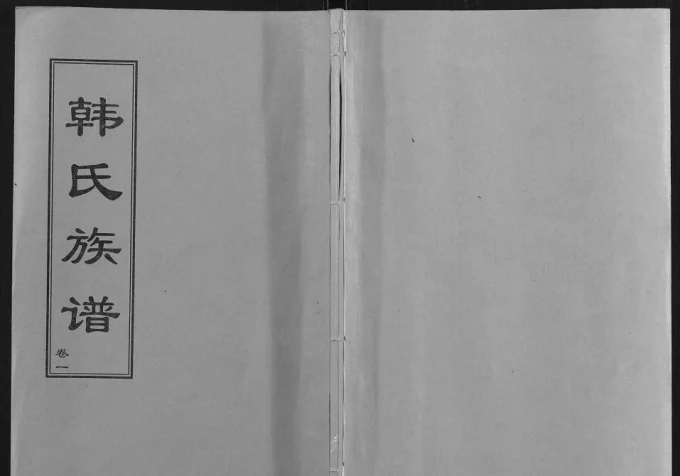 韩氏族谱
卷一